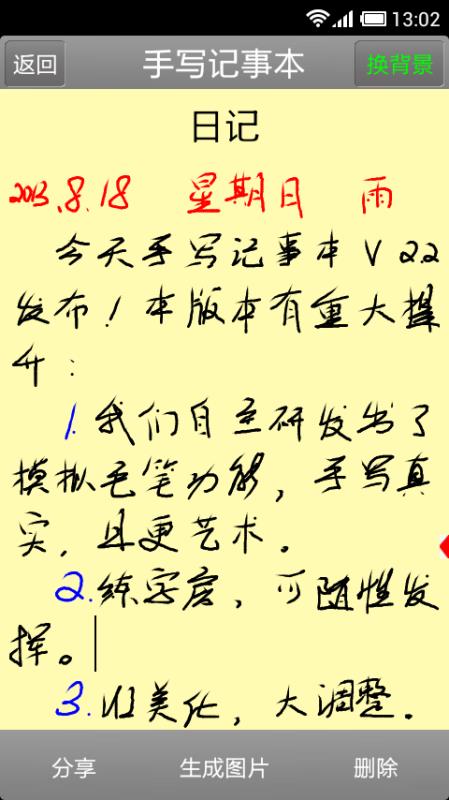 13:02
返回 手写记事本 换背景
日记
2013.8.18 星期日 雨
今天手写记事本V2.2
发布!本版本有重大提
升:
1.我们自主研发出了
模拟毛笔功能,手写真
实,且更艺术。
2.练字房,可随性发
挥。
3.UI美化,大调整。
分享 生成图片 删除